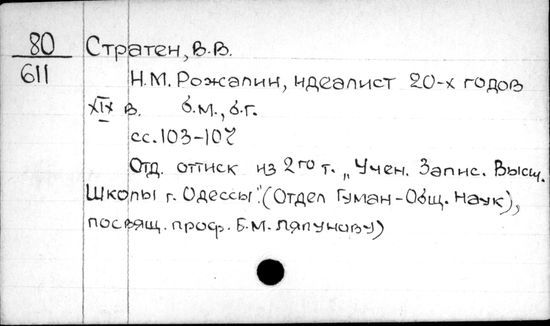 80 Стратен, В.В.
611 Н.М. Рожалин, идеалист 20-х годов
XIX в. б.м., б.г.
сс. 103-107
Отд. оттиск из 2го т. „Учен. Запис. Высш.
Школы г. Одессы" (Отдел Гуман-Общ. Наук),
посвящ. проф. Б.М. Ляпунову)